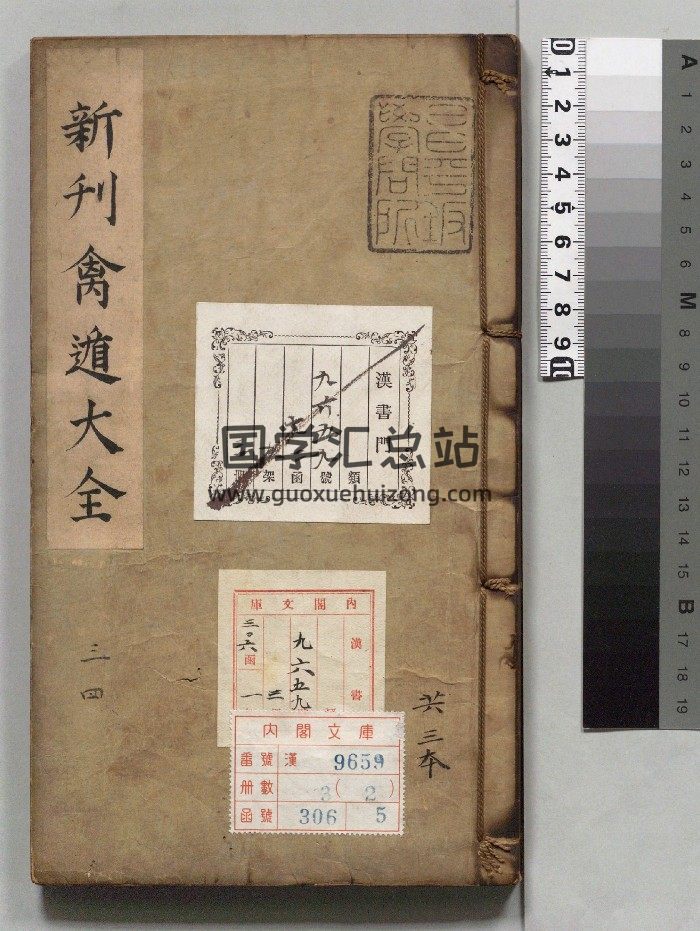 新刊禽遁大全
三四
共三本
漢書門
九六五九
類
號
函
架
冊
国学汇总站
www.guoxuehuizong.com
內閣文庫
漢書
九六五九
三〇六
函
一
內閣文庫
番號 漢 9659
冊數 3(2)
函號 306 5
0 1 2 3 4 5 6 7 8 9 10
A 1 2 3 4 5 6 M 8 9 10 11 12 13 14 15 B 17 18 19